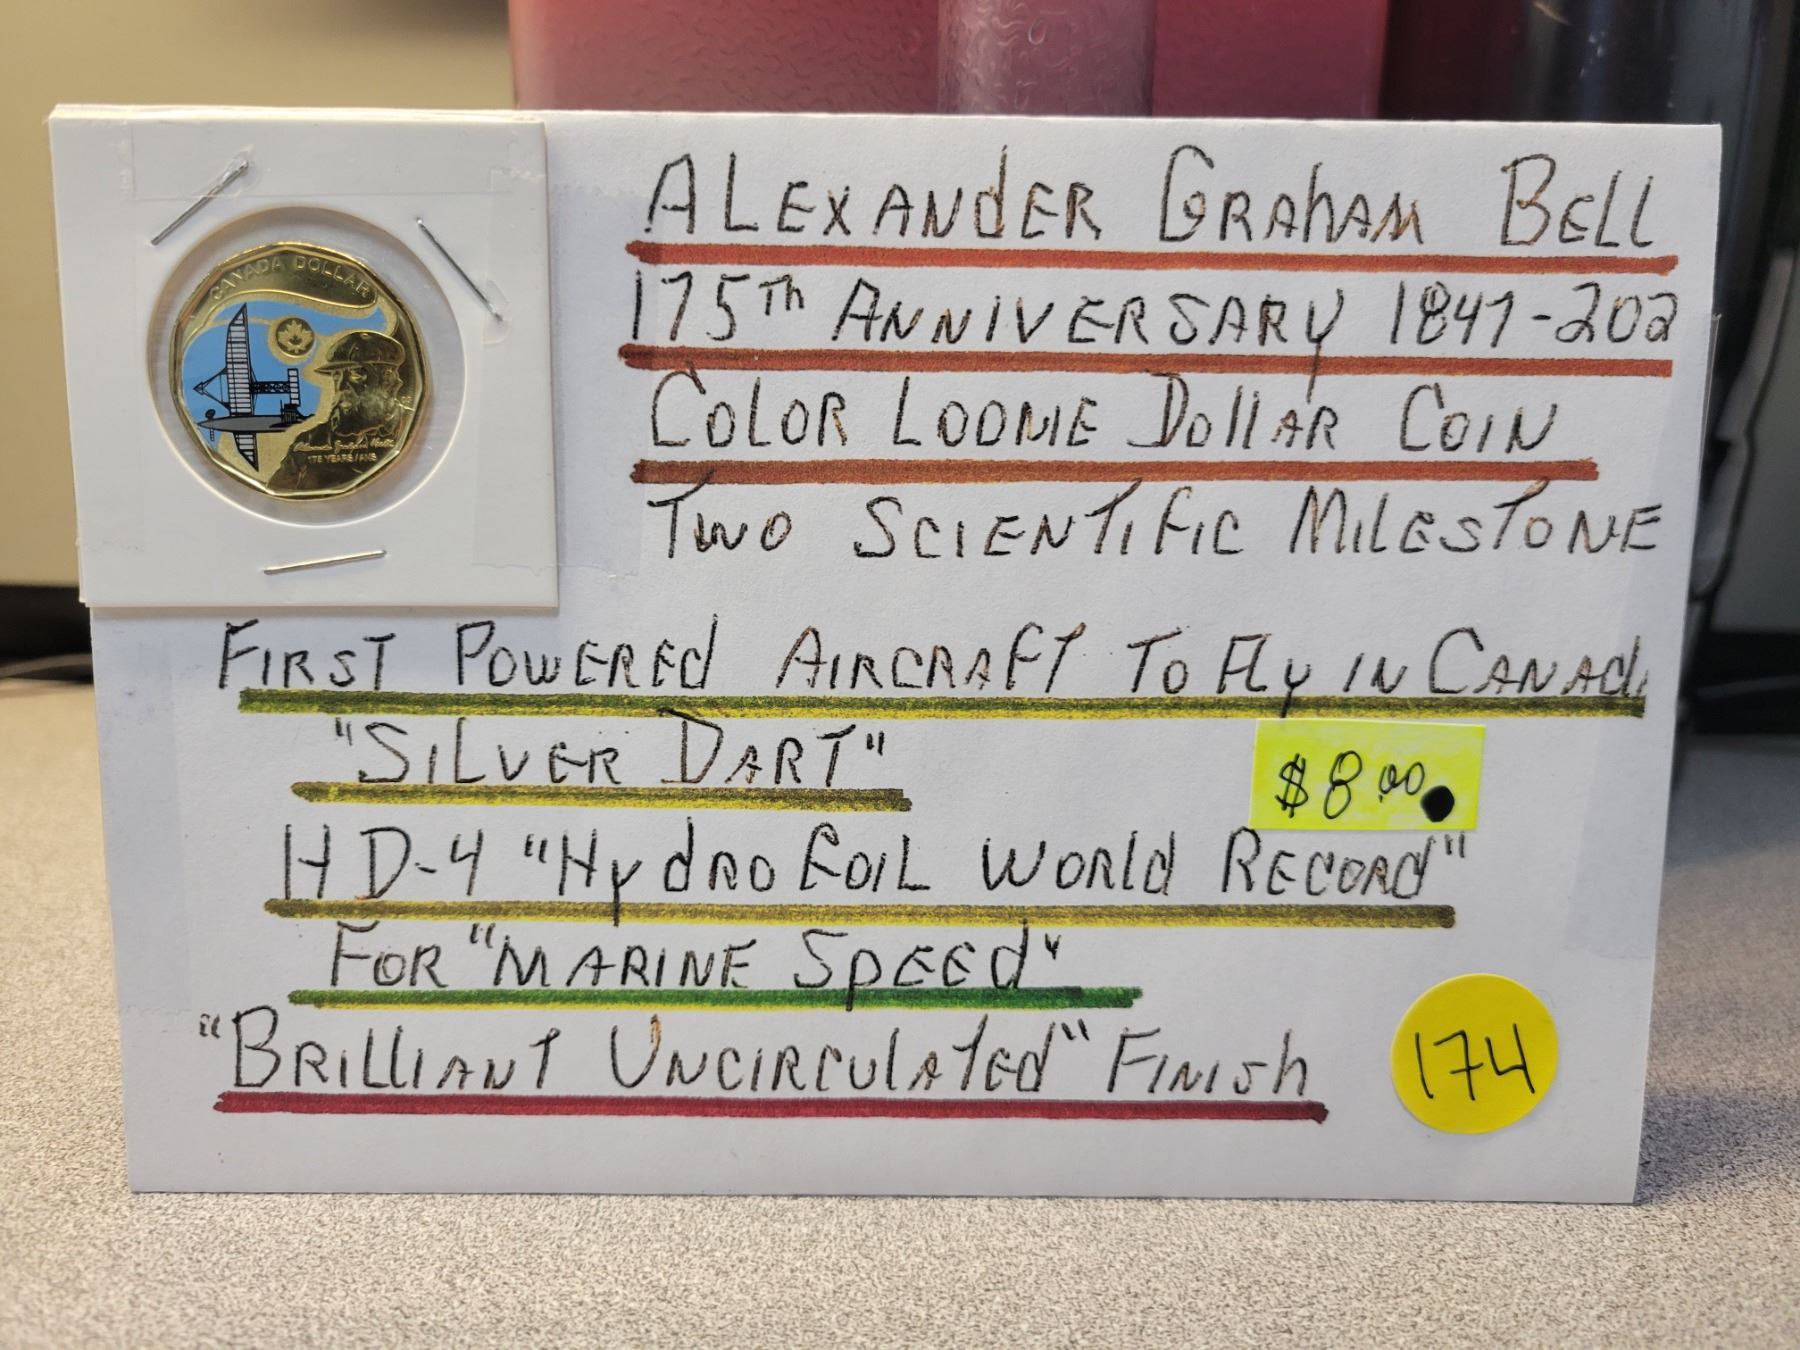 CANADA DOLLAR
175 YEARS/ANS
ALEXANDER GRAHAM BELL
175Th ANNIVERSARY 1847-202
COLOR LOONIE DOllAR COIN
TWO SCIENTIFIC MILESTONE
FIRST POWERED AIRCRAFT TO Fly IN CANAD
"SILVER DART"
$8.00.
HD-4 "HydROFOIL WORld RECORd"
FOR "MARINE SpEEd"
"BRIllIANT UNCIRCulATEd" FINISh
174